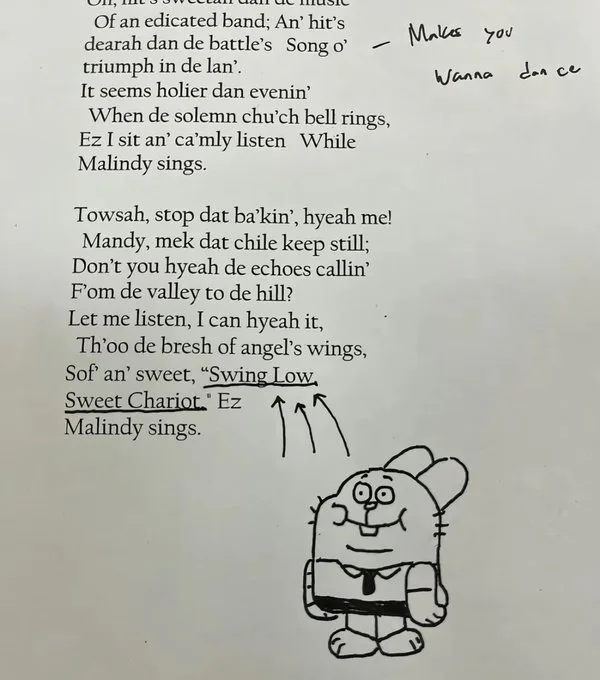 Oh, hit's sweetah dan de music
Of an edicated band; An' hit's
dearah dan de battle's Song o'
triumph in de lan'.
It seems holier dan evenin'
When de solemn chu'ch bell rings,
Ez I sit an' ca'mly listen While
Malindy sings.
Towsah, stop dat ba'kin', hyeah me!
Mandy, mek dat chile keep still;
Don't you hyeah de echoes callin'
F'om de valley to de hill?
Let me listen, I can hyeah it,
Th'oo de bresh of angel's wings,
Sof' an' sweet, “Swing Low,
Sweet Chariot." Ez
Malindy sings.
– Makes you
Wanna dance